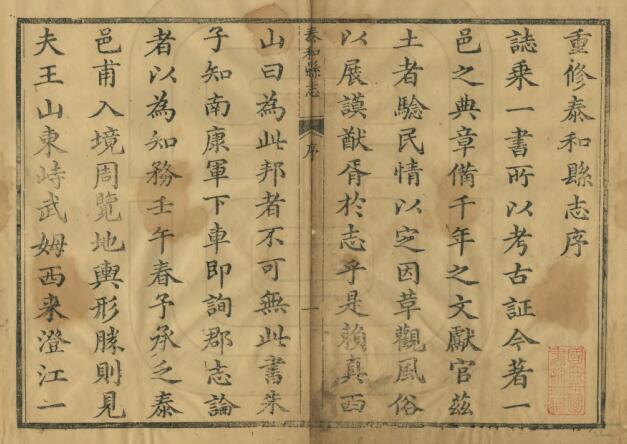 重修泰和縣志序
誌乗一書所以考古証今著一
邑之典章備千年之文獻官茲
土者驗民情以定因革觀風俗
以展謨猷胥於志乎是賴真西
泰和縣志
序
一
山曰為此邦者不可無此書朱
子知南康軍下車即詢郡志論
者以為知務壬午春予承乏泰
邑甫入境周覽地輿形勝則見
夫王山東峙武姥西来澄江一